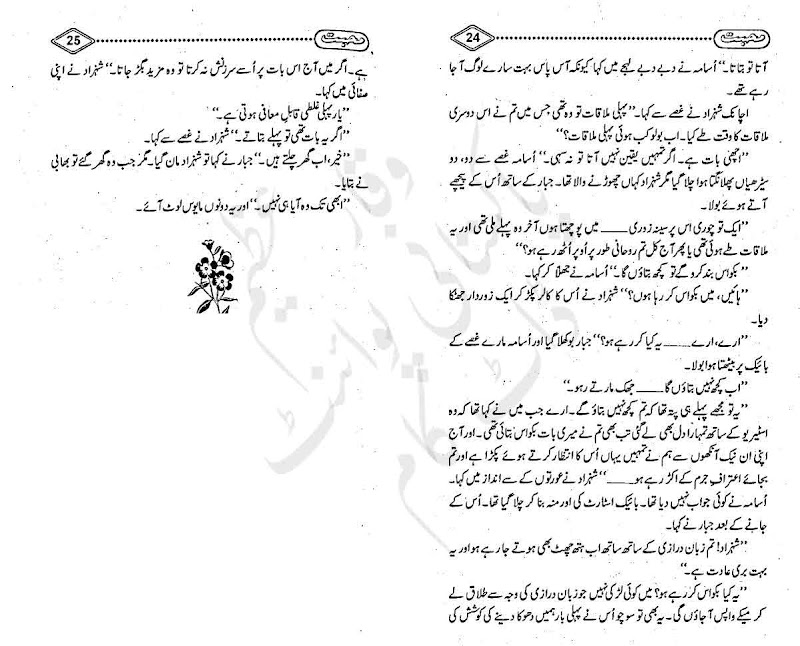 محبت
24
آتا تو بتاتا۔“ اُسامہ نے دبے دبے لہجے میں کہا کیونکہ آس پاس بہت سارے لوگ آ جا
رہے تھے۔
اچانک شہزاد نے غصے سے کہا۔ ”پہلی ملاقات تو وہ تھی جس میں تم نے اس دوسری
ملاقات کا وقت طے کیا۔ اب بولو کب ہوئی پہلی ملاقات؟“
”اچھی بات ہے۔ اگر تمہیں یقین نہیں آتا تو نہ سہی۔“ اُسامہ غصے سے دو، دو
سیڑھیاں پھلانگتا ہوا چلا گیا مگر شہزاد کہاں چھوڑنے والا تھا۔ جبار کے ساتھ اُس کے پیچھے
آتے ہوئے بولا۔
”ایک تو چوری اس پر سینہ زوری ____ میں پوچھتا ہوں آخر وہ پہلے ملی تھی اور یہ
ملاقات طے ہوئی تھی یا پھر آج کل تم روحانی طور پر اُوپر اُٹھ رہے ہو؟“
”بکواس بند کرو گے تو کچھ بتاؤں گا۔“ اُسامہ نے جھلا کر کہا۔
”ہائیں، میں بکواس کر رہا ہوں؟“ شہزاد نے اُس کا کالر پکڑ کر ایک زوردار جھٹکا
دیا۔
”ارے، ارے ____ یہ کیا کر رہے ہو؟“ جبار بوکھلا گیا اور اُسامہ مارے غصے کے
بائیک پر بیٹھتا ہوا بولا۔
”اب کچھ نہیں بتاؤں گا ____ جھک مارتے رہو۔“
”یہ تو مجھے پہلے ہی پتہ تھا کہ تم کچھ نہیں بتاؤ گے۔ ارے جب میں نے کہا تھا کہ وہ
اسٹیریو کے ساتھ تمہارا دل بھی لے گئی تب بھی تم نے میری بات بکواس بتائی تھی۔ اور آج
اپنی ان نیک آنکھوں سے ہم نے تمہیں یہاں اُس کا انتظار کرتے ہوئے پکڑا ہے اور تم
بجائے اعترافِ جرم کے اکڑ رہے ہو ____“ شہزاد نے عورتوں کے سے انداز میں کہا۔
اُسامہ نے کوئی جواب نہیں دیا تھا۔ بائیک اسٹارٹ کی اور منہ بنا کر چلا گیا تھا۔ اُس کے
جانے کے بعد جبار نے کہا۔
”شہزاد! تم زبان درازی کے ساتھ ساتھ اب ہتھ چھٹ بھی ہوتے جا رہے ہو اور یہ
بہت بری عادت ہے۔“
”یہ کیا بکواس کر رہے ہو؟ میں کوئی لڑکی نہیں جو زبان درازی کی وجہ سے طلاق لے
کر میکے واپس آ جاؤں گی۔ یہ بھی تو سوچو اُس نے پہلی بار ہمیں دھوکا دینے کی کوشش کی
محبت
25
ہے۔ اگر میں آج اس بات پر اُسے سرزنش نہ کرتا تو وہ مزید بگڑ جاتا۔“ شہزاد نے اپنی
صفائی میں کہا۔
”یار پہلی غلطی قابلِ معافی ہوتی ہے۔“
”اگر یہ بات تھی تو پہلے بتاتے۔“ شہزاد نے غصے سے کہا۔
”خیر، اب گھر چلتے ہیں۔“ جبار نے کہا تو شہزاد مان گیا۔ مگر جب وہ گھر گئے تو بھابی
نے بتایا۔
”ابھی تک وہ آیا ہی نہیں۔“ اور یہ دونوں مایوس لوٹ آئے۔
وقار عظیم
پاکستانی پوائنٹ
ڈاٹ کام